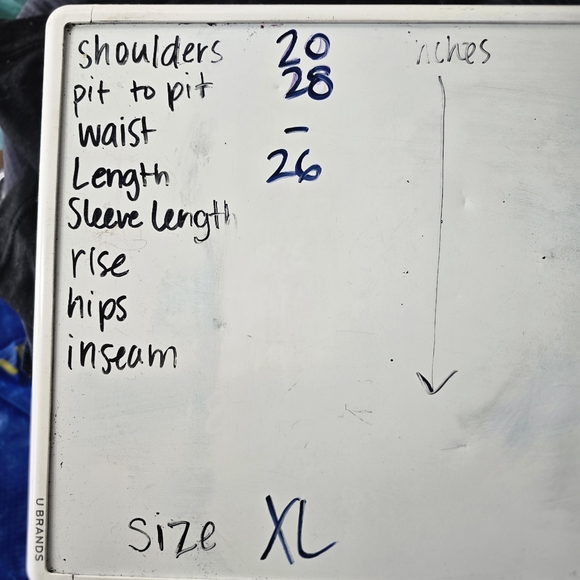 shoulders 20 inches
pit to pit 28
waist -
Length 26
Sleeve length
rise
hips
inseam
size XL
U BRANDS